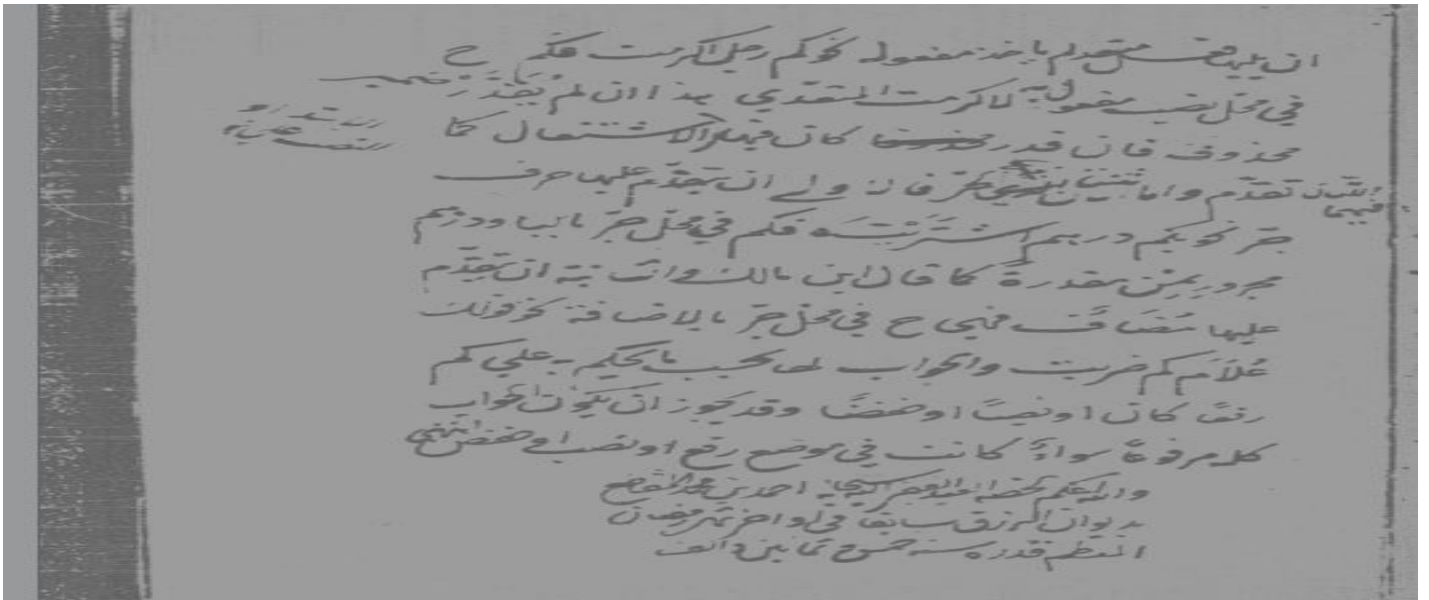 ان يليها فعل متعد لم ياخذ مفعوله نحو كم رجل اكرمت فكم ح
في محل نصب مفعول به لاكرمت المتعدي هذا ان لم يقدر ضمير
محذوف فان قدر كان فيها الاشتغال كما
تقدم واما جر فان ولي ان تقدم عليها حرف
جر نحو بكم درهم اشتريته فكم في محل جر بالبا ودرهم
مجرور بمن مقدرة كما قال ابن مالك والثانية ان تقدم
عليها مضاف فهي ح في محل جر بالاضافة نحو قولك
غلام كم ضربت والجواب لها بحسب ما يحكم به على كم
رفعا كان او نصبا او خفضا وقد يجوز ان يكون الجواب
كله مرفوعا سواء كانت في موضع رفع او نصب او خفض انتهى
والله اعلم احمد بن محمد
بديوان الرزق سابقا في اواخر شهر رمضان
المعظم قدره سنة خمس وثمانين والف